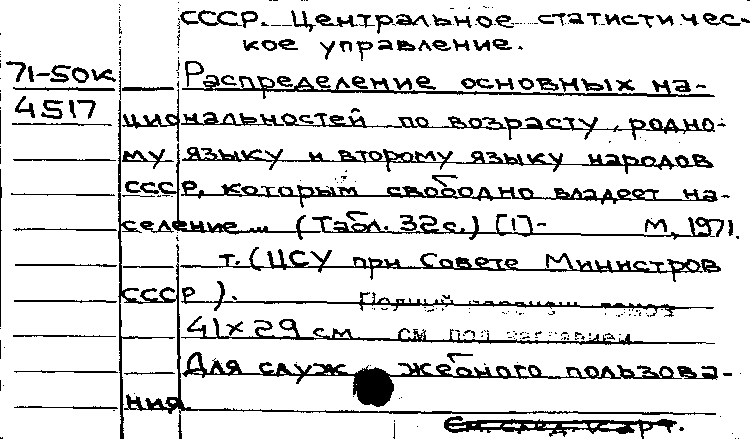 СССР. Центральное статистичес-
кое управление.
71-50к Распределение основных на-
4517 циональностей по возрасту, родно-
му языку и второму языку народов
СССР, которым свободно владеет на-
селение... (Табл. 32с.) [1]- М., 1971.
т. (ЦСУ при Совете Министров
СССР).
Полный
41×29 см см под заглавием
Для служ жебного пользова-
ния.
См. след. карт.